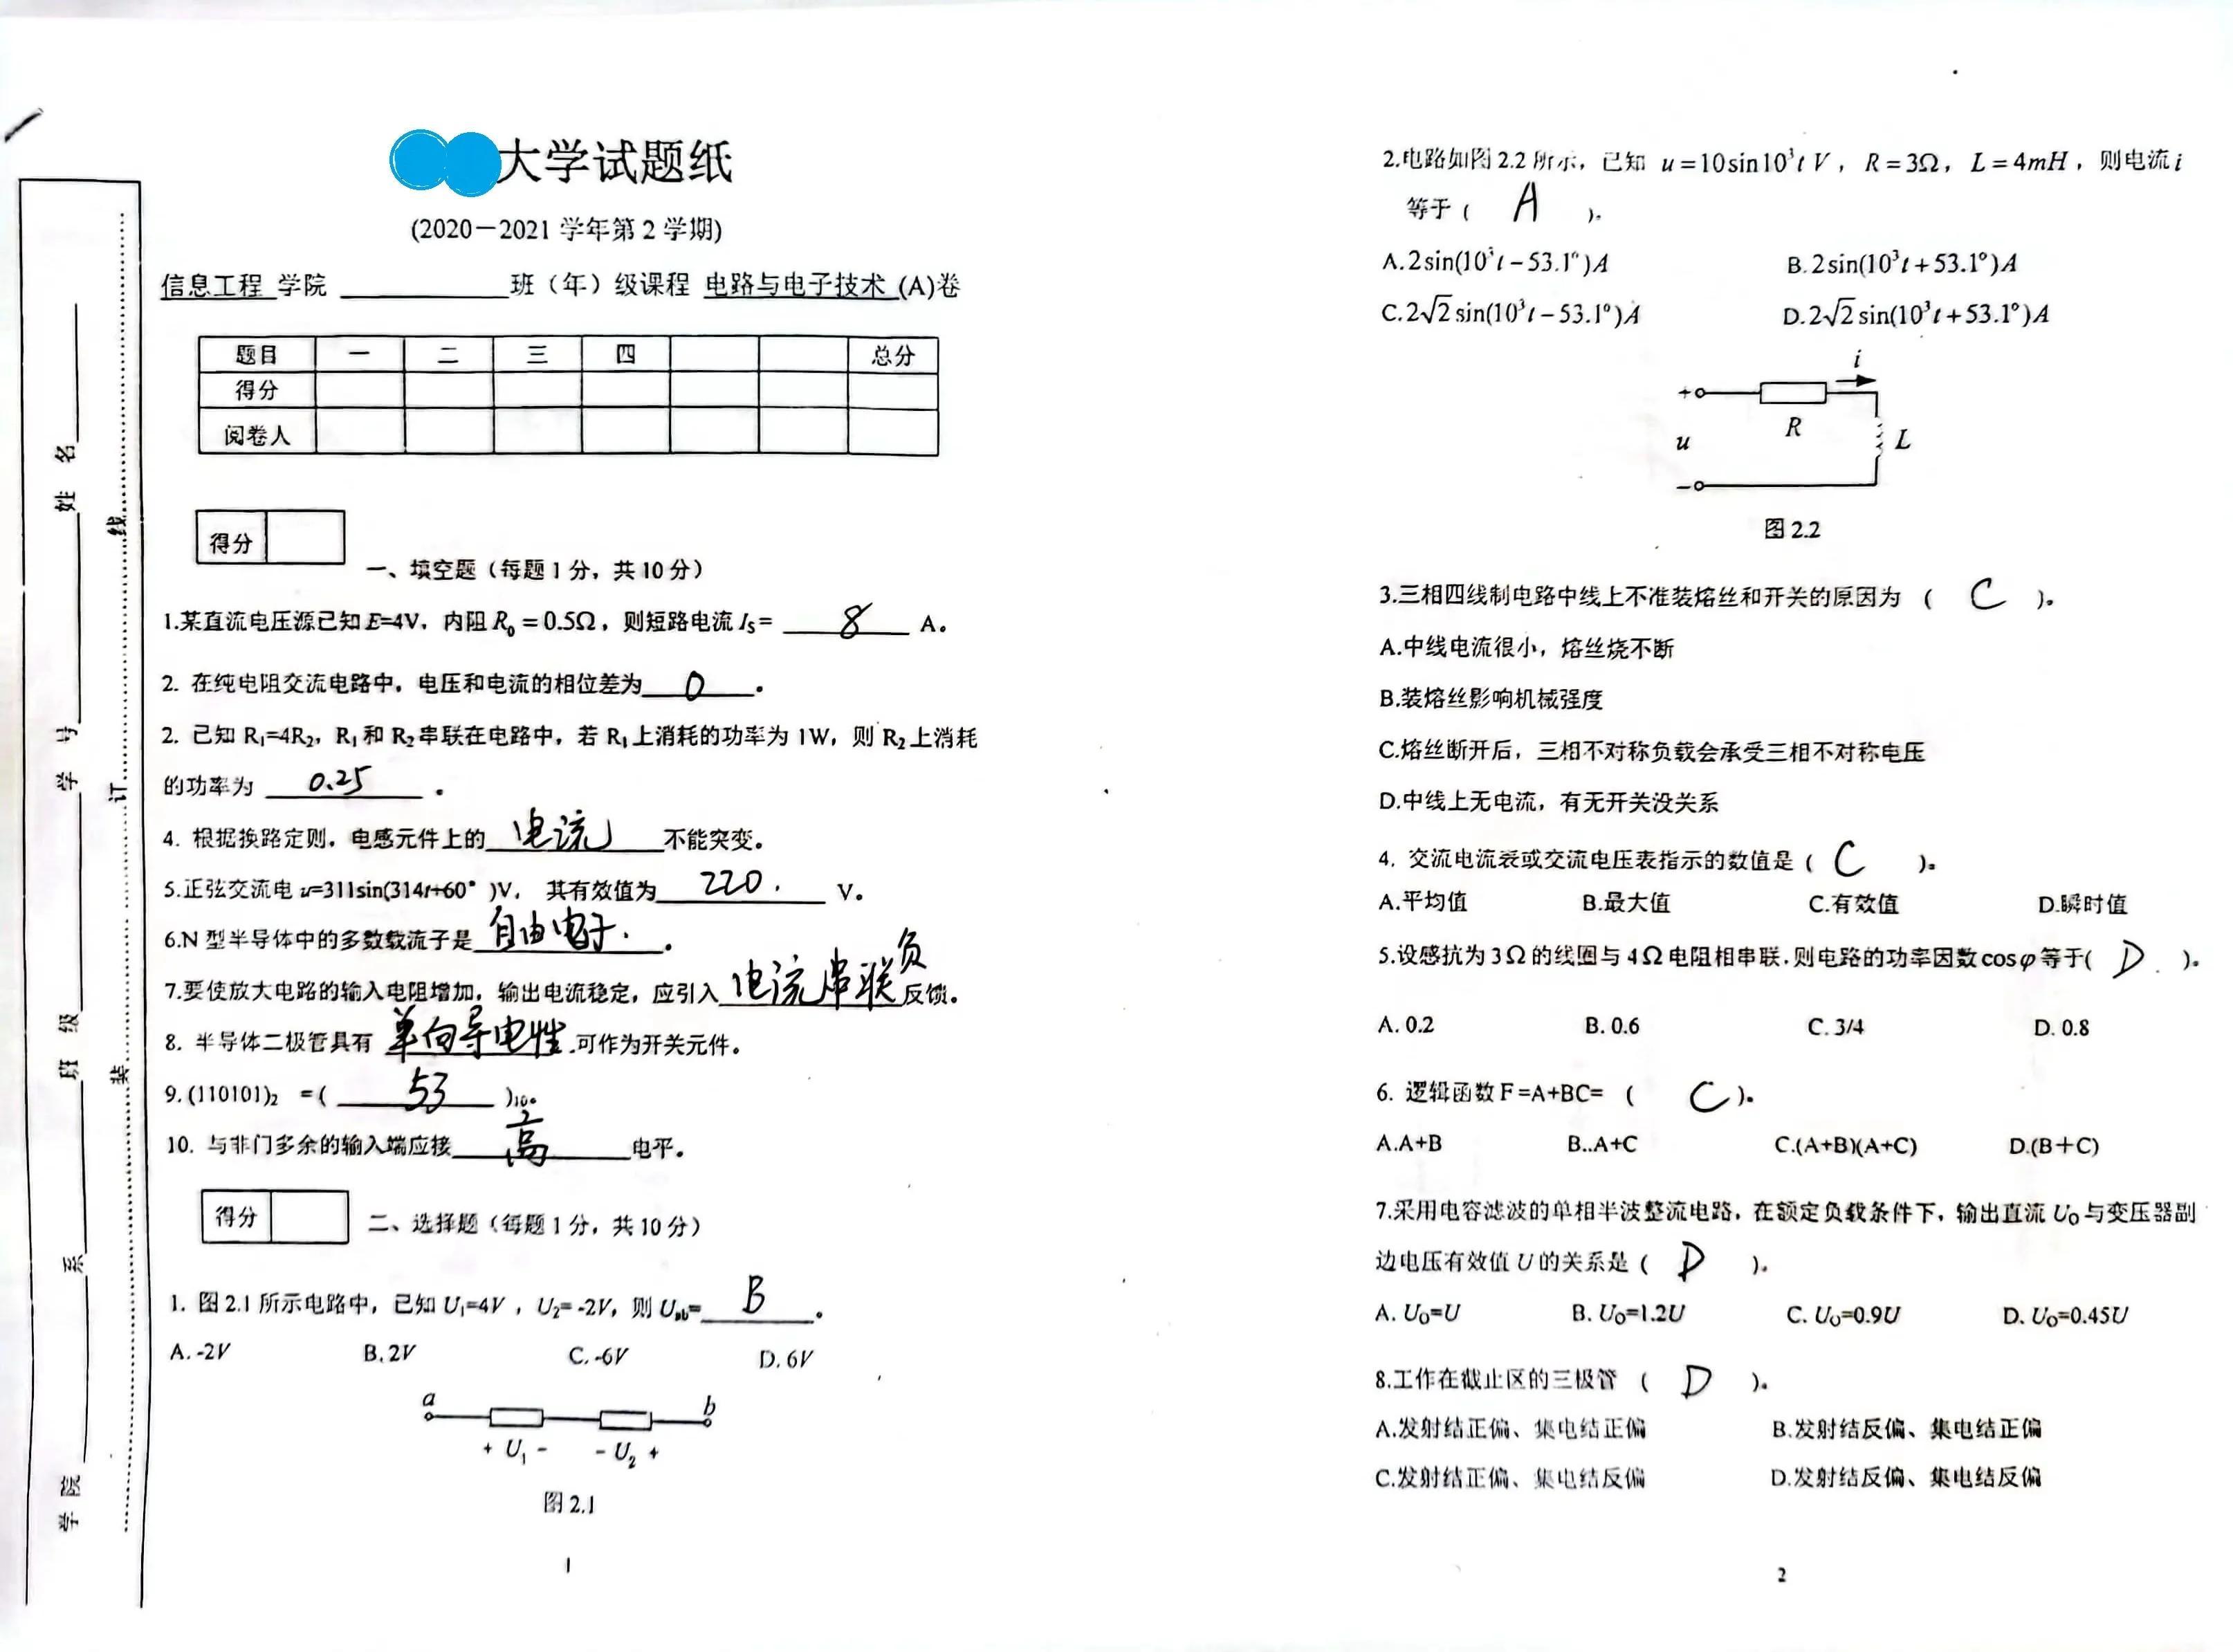 大学试题纸
(2020－2021 学年第 2 学期)
信息工程 学院 班（年）级课程 电路与电子技术 (A)卷
题目 一 二 三 四 总分
得分
阅卷人
得分
一、填空题（每题 1 分，共 10 分）
1.某直流电压源已知 E=4V，内阻 R₀ = 0.5Ω，则短路电流 I_S = 8 A。
2. 在纯电阻交流电路中，电压和电流的相位差为 0 。
2. 已知 R₁=4R₂，R₁ 和 R₂ 串联在电路中，若 R₁ 上消耗的功率为 1W，则 R₂ 上消耗
的功率为 0.25 。
4. 根据换路定则，电感元件上的 电流 不能突变。
5.正弦交流电 u=311sin(314t+60° )V， 其有效值为 220. V。
6.N 型半导体中的多数载流子是 自由电子. 。
7.要使放大电路的输入电阻增加，输出电流稳定，应引入 电流串联负 反馈。
8. 半导体二极管具有 单向导电性 ,可作为开关元件。
9. (110101)₂ =( 53 )₁₀。
10. 与非门多余的输入端应接 高 电平。
得分
二、选择题（每题 1 分，共 10 分）
1. 图 2.1 所示电路中，已知 U₁=4V ，U₂= -2V，则 U_ab= B 。
A. -2V B. 2V C. -6V D. 6V
a b
+ U₁ - - U₂ +
图 2.1
1
姓 名
学 号
班 级
系
学 院
线
订
装
2.电路如图 2.2 所示，已知 u=10sin10³t V，R=3Ω，L=4mH，则电流 i
等于（ A ）。
A. 2sin(10³t−53.1°)A B. 2sin(10³t+53.1°)A
C. 2√2sin(10³t−53.1°)A D. 2√2sin(10³t+53.1°)A
i
+
R
u L
−
图 2.2
3.三相四线制电路中线上不准装熔丝和开关的原因为 （ C ）。
A.中线电流很小，熔丝烧不断
B.装熔丝影响机械强度
C.熔丝断开后，三相不对称负载会承受三相不对称电压
D.中线上无电流，有无开关没关系
4. 交流电流表或交流电压表指示的数值是（ C ）。
A.平均值 B.最大值 C.有效值 D.瞬时值
5.设感抗为 3Ω 的线圈与 4Ω 电阻相串联,则电路的功率因数 cosφ 等于( D . )。
A. 0.2 B. 0.6 C. 3/4 D. 0.8
6. 逻辑函数 F =A+BC= （ C ）。
A.A+B B..A+C C.(A+B)(A+C) D.(B＋C)
7.采用电容滤波的单相半波整流电路，在额定负载条件下，输出直流 U_O 与变压器副
边电压有效值 U 的关系是（ D ）。
A. U_O=U B. U_O=1.2U C. U_O=0.9U D. U_O=0.45U
8.工作在截止区的三极管 （ D ）。
A.发射结正偏、集电结正偏 B.发射结反偏、集电结正偏
C.发射结正偏、集电结反偏 D.发射结反偏、集电结反偏
2